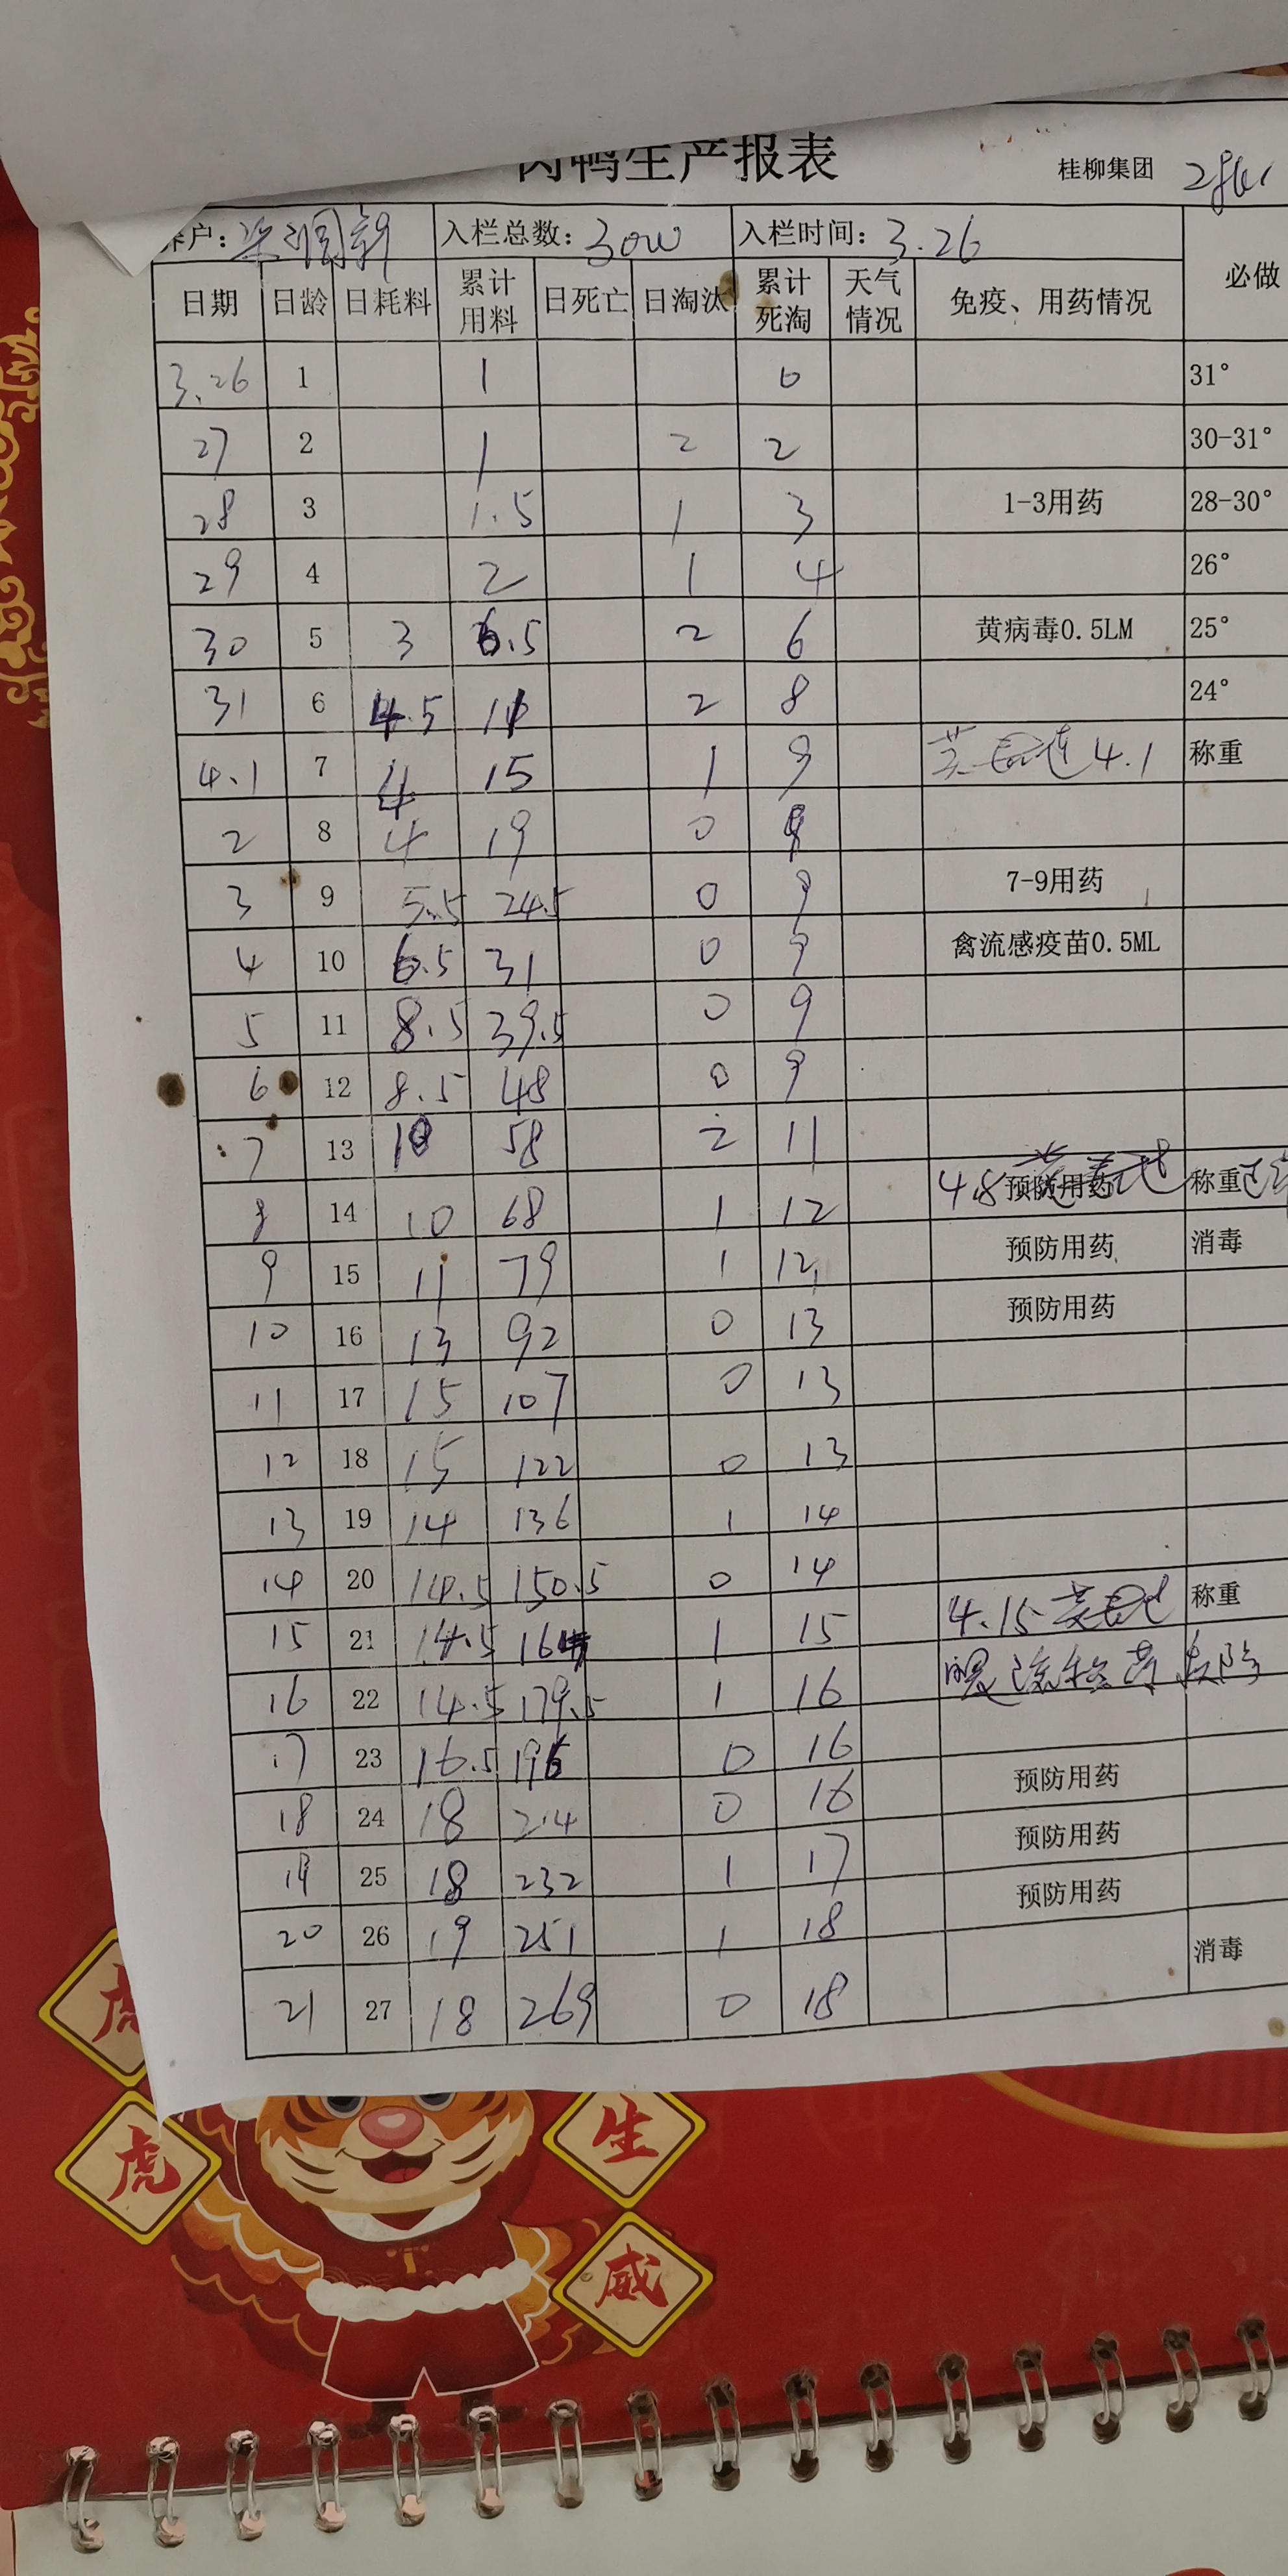 肉鸭生产报表 桂柳集团
养户: 入栏总数: 3000 入栏时间: 3.26 必做
日期 日龄 日耗料 累计用料 日死亡 日淘汰 累计死淘 天气情况 免疫、用药情况
3.26 1 1 0 31°
27 2 1 2 2 30-31°
28 3 1.5 1 3 1-3用药 28-30°
29 4 2 1 4 26°
30 5 3 6.5 2 6 黄病毒0.5LM 25°
31 6 4.5 11 2 8 24°
4.1 7 4 15 1 9 4.1 称重
2 8 4 19 0 9
3 9 5.5 24.5 0 9 7-9用药
4 10 6.5 31 0 9 禽流感疫苗0.5ML
5 11 8.5 39.5 0 9
6 12 8.5 48 0 9
7 13 10 58 2 11
8 14 10 68 1 12 4.8 预防用药 称重
9 15 11 79 1 12 预防用药 消毒
10 16 13 92 0 13 预防用药
11 17 15 107 0 13
12 18 15 122 0 13
13 19 14 136 1 14
14 20 14.5 150.5 0 14
15 21 14.5 164 1 15 4.15 称重
16 22 14.5 179.5 1 16
17 23 16.5 196 0 16
18 24 18 214 0 16 预防用药
19 25 18 232 1 17 预防用药
20 26 19 251 1 18 预防用药
21 27 18 269 0 18 消毒
虎
虎 生
威